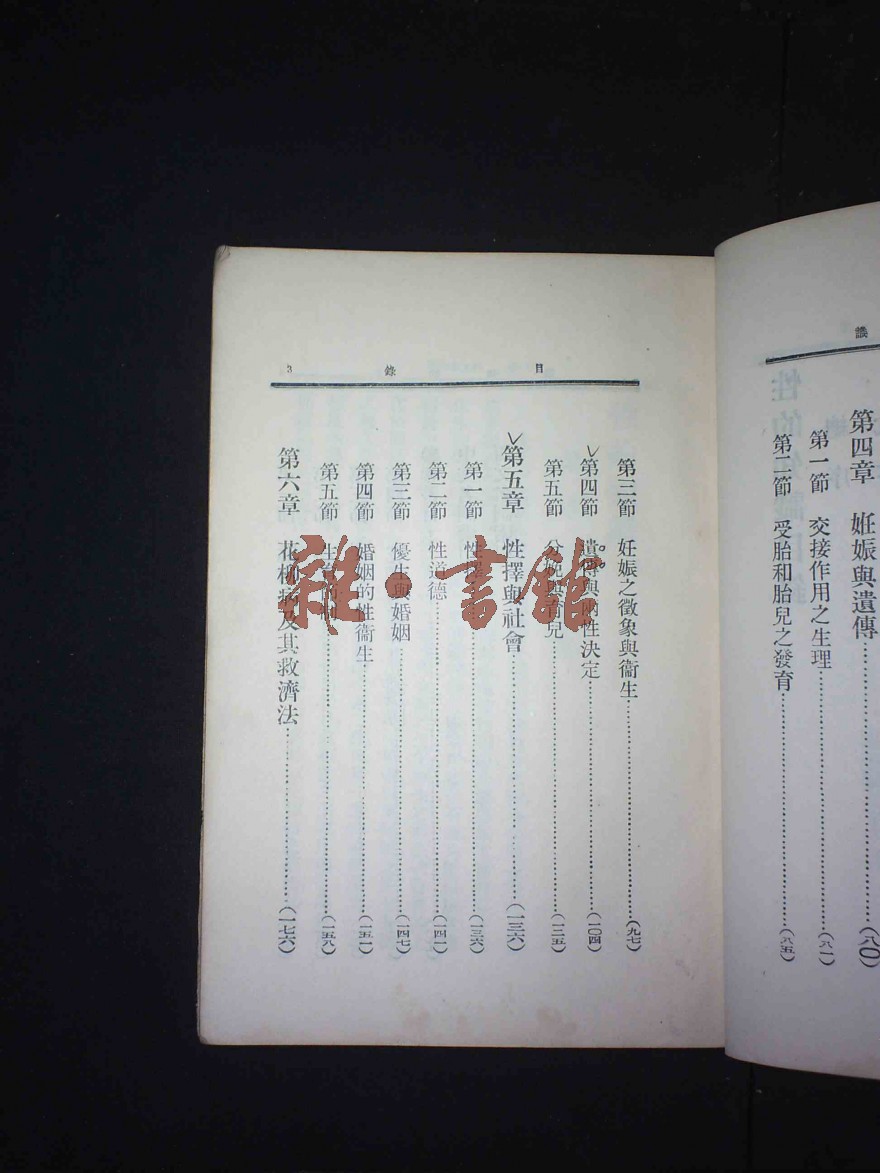 識
第四章　妊娠與遺傳……(八〇)
第一節　交接作用之生理……(八一)
第二節　受胎和胎兒之發育……(八五)
目錄　3
第三節　妊娠之徵象與衞生……(九七)
第四節　遺傳與兩性決定……(一〇四)
第五節　分娩與育兒……(一二五)
第五章　性擇與社會……(一三六)
第一節　性……(一三六)
第二節　性道德……(一四一)
第三節　優生與婚姻……(一四七)
第四節　婚姻的性衞生……(一五一)
第五節　生育……(一五八)
第六章　花柳病及其救濟法……(一七六)
雜·書館